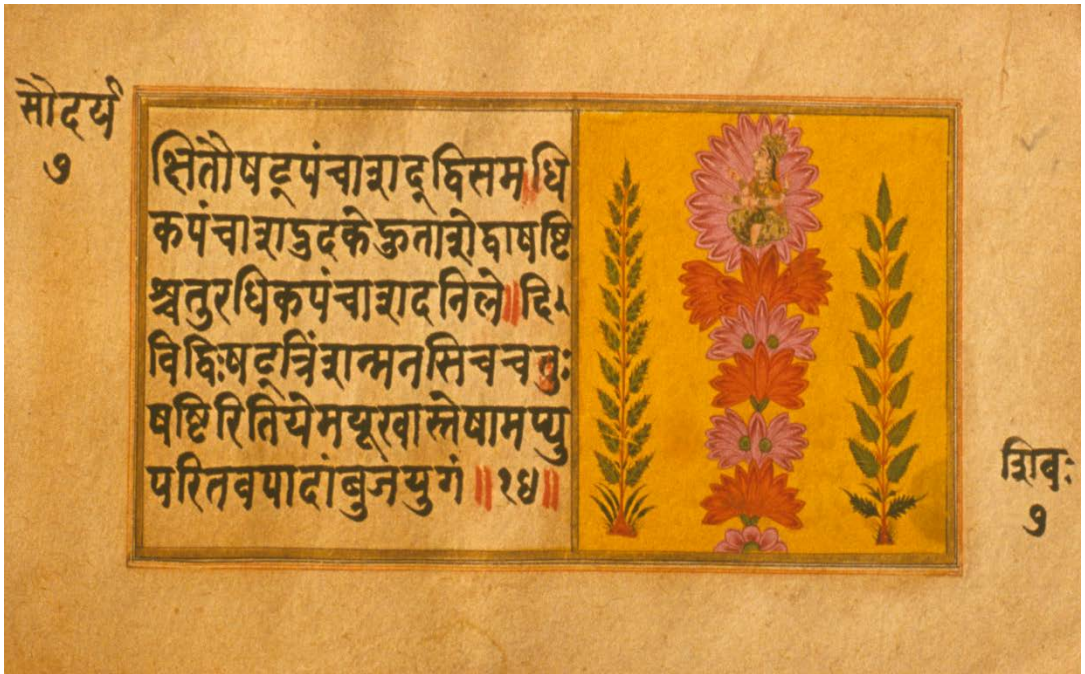 सौदर्य
७
क्षितौषट्पंचाशद्द्विसमधि
कपंचाशदुदकेहुताशेद्वाषष्टि
श्चतुरधिकपंचाशदनिले॥दि
विद्विःषट्त्रिंशन्मनसिचचतुः
षष्टिरितियेमयूखास्तेषामप्यु
परितवपादांबुजयुगं॥१४॥
शिवः
७